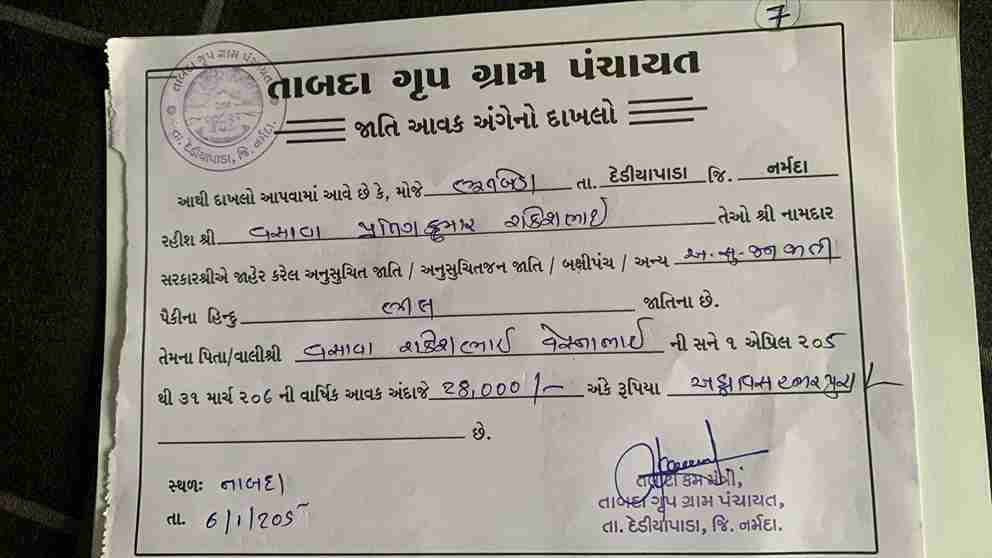 7
તાબદા ગૃપ ગ્રામ પંચાયત
તા. દેડીયાપાડા, જિ. નર્મદા.
તાબદા ગૃપ ગ્રામ પંચાયત
જાતિ આવક અંગેનો દાખલો
આથી દાખલો આપવામાં આવે છે કે, મોજે તા. દેડીયાપાડા જિ. નર્મદા
રહીશ શ્રી વસાવા તેઓ શ્રી નામદાર
સરકારશ્રીએ જાહેર કરેલ અનુસુચિત જાતિ / અનુસુચિતજન જાતિ / બક્ષીપંચ / અન્ય અ.સુ.જન જાતી
પૈકીના હિન્દુ ભીલ જાતિના છે.
તેમના પિતા/વાલીશ્રી વસાવા ની સને ૧ એપ્રિલ ૨૦૬
થી ૩૧ માર્ચ ૨૦૬ ની વાર્ષિક આવક અંદાજે 28,000/- અંકે રૂપિયા અઠ્ઠાવિસ હજાર પુરા/-
છે.
સ્થળઃ તાબદા
તા. 6/1/205
તલાટી કમ મંત્રી,
તાબદા ગૃપ ગ્રામ પંચાયત,
તા. દેડીયાપાડા, જિ. નર્મદા.